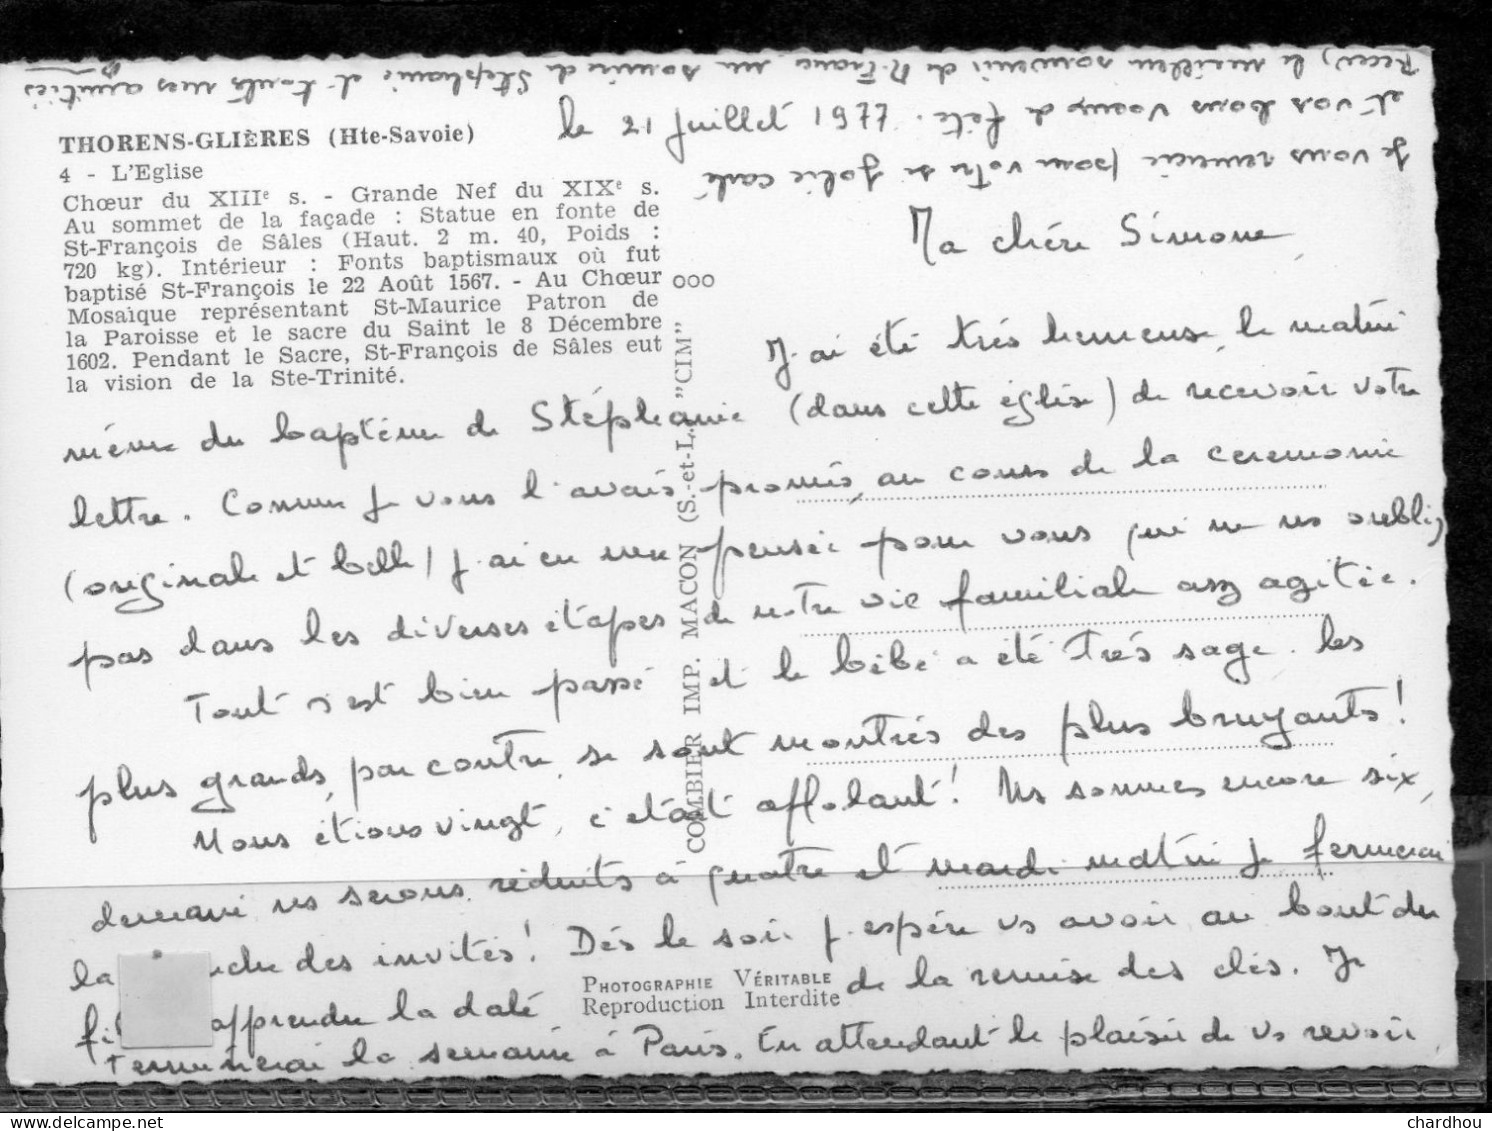 THORENS-GLIÈRES (Hte-Savoie)
4 - L'Eglise
Chœur du XIIIe s. - Grande Nef du XIXe s.
Au sommet de la façade : Statue en fonte de
St-François de Sâles (Haut. 2 m. 40, Poids :
720 kg). Intérieur : Fonts baptismaux où fut
baptisé St-François le 22 Août 1567. - Au Chœur
Mosaïque représentant St-Maurice Patron de
la Paroisse et le sacre du Saint le 8 Décembre
1602. Pendant le Sacre, St-François de Sâles eut
la vision de la Ste-Trinité.
le 21 juillet 1977.
Ma chère Simone,
J'ai été très heureuse, le matin
même du baptême de Stéphanie (dans cette église) de recevoir votre
lettre. Comme je vous l'avais promis, au cours de la ceremonie
(originale et belle) j'ai eu une pensée pour vous qui ne ns oubliez
pas dans les diverses étapes de notre vie familiale assez agitée.
Tout s'est bien passé et le bébé a été très sage. Les
plus grands, par contre, se sont montrés des plus bruyants!
Nous étions vingt, c'était affolant! Ns sommes encore six,
demain ns serons réduits à quatre et mardi matin je fermerai
la des invités! Dès le soir j'espère vs avoir au bout du
fil apprendre la date de la remise des clés. Je
terminerai la semaine à Paris. En attendant le plaisir de vs revoir
Je vous remercie pour votre si jolie carte
et vos bons voeux de fête.
Recevez le meilleur souvenir de R. Franc un sourire de Stéphanie et toutes mes amitiés
ooo
COMBIER IMP. MACON (S.-et-L.) "CIM"
PHOTOGRAPHIE VÉRITABLE
Reproduction Interdite
chardhou